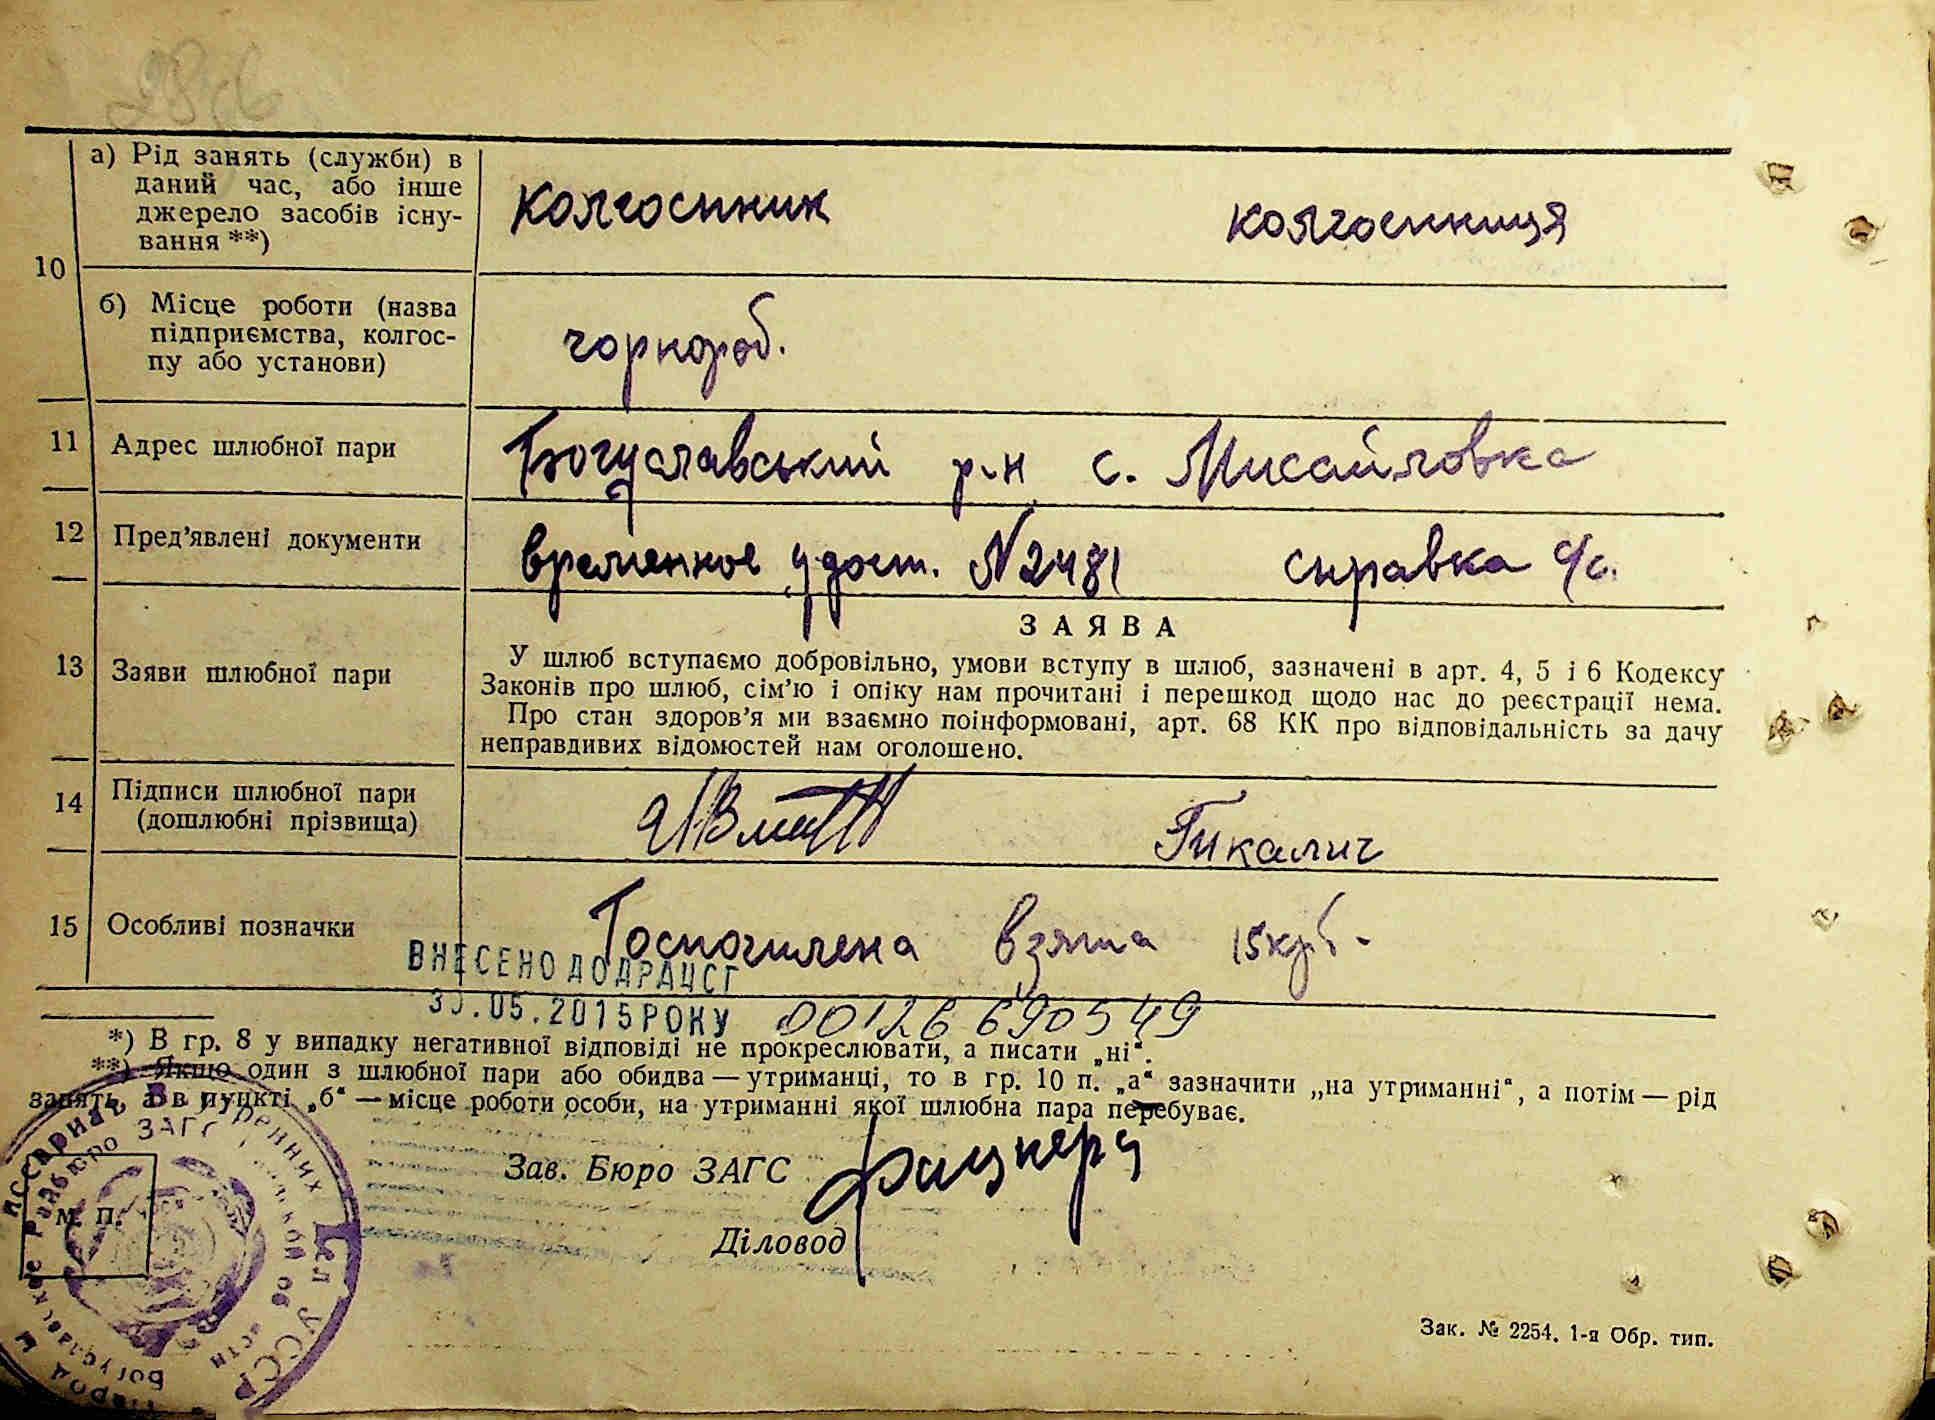 10
а) Рід занять (служби) в
даний час, або інше
джерело засобів існу-
вання **)
колгоспник колгоспниця
б) Місце роботи (назва
підприємства, колгос-
пу або установи)
чорнороб.
11 Адрес шлюбної пари Богуславський р-н с. Мисайловка
12 Пред'явлені документи временное удост. N 2481 справка с/с.
13 Заяви шлюбної пари
ЗАЯВА
У шлюб вступаємо добровільно, умови вступу в шлюб, зазначені в арт. 4, 5 і 6 Кодексу
Законів про шлюб, сім'ю і опіку нам прочитані і перешкод щодо нас до реєстрації нема.
Про стан здоров'я ми взаємно поінформовані, арт. 68 КК про відповідальність за дачу
неправдивих відомостей нам оголошено.
14 Підписи шлюбної пари
(дошлюбні прізвища)
Гикалич
15 Особливі позначки взята 15 крб.
ВНЕСЕНО ДО ДРАЦСГ
30.05.2015 РОКУ 00126690549
*) В гр. 8 у випадку негативної відповіді не прокреслювати, а писати „ні“.
**) Якщо один з шлюбної пари або обидва — утриманці, то в гр. 10 п. „а“ зазначити „на утриманні“, а потім — рід
занять, а в пункті „б“ — місце роботи особи, на утриманні якої шлюбна пара перебуває.
Зав. Бюро ЗАГС
Діловод
М. П.
Внутренних Дел УССР
Богуславское Райбюро ЗАГС
Зак. № 2254. 1-я Обр. тип.